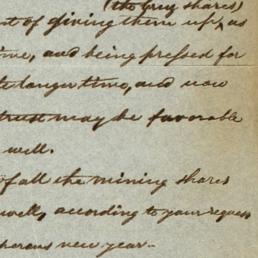 (the Gray shares)
of giving them up, as
time, and being pressed for
longer time, and now
trust may be favorable
well.
of all the mining shares
well, according to your request
new year.